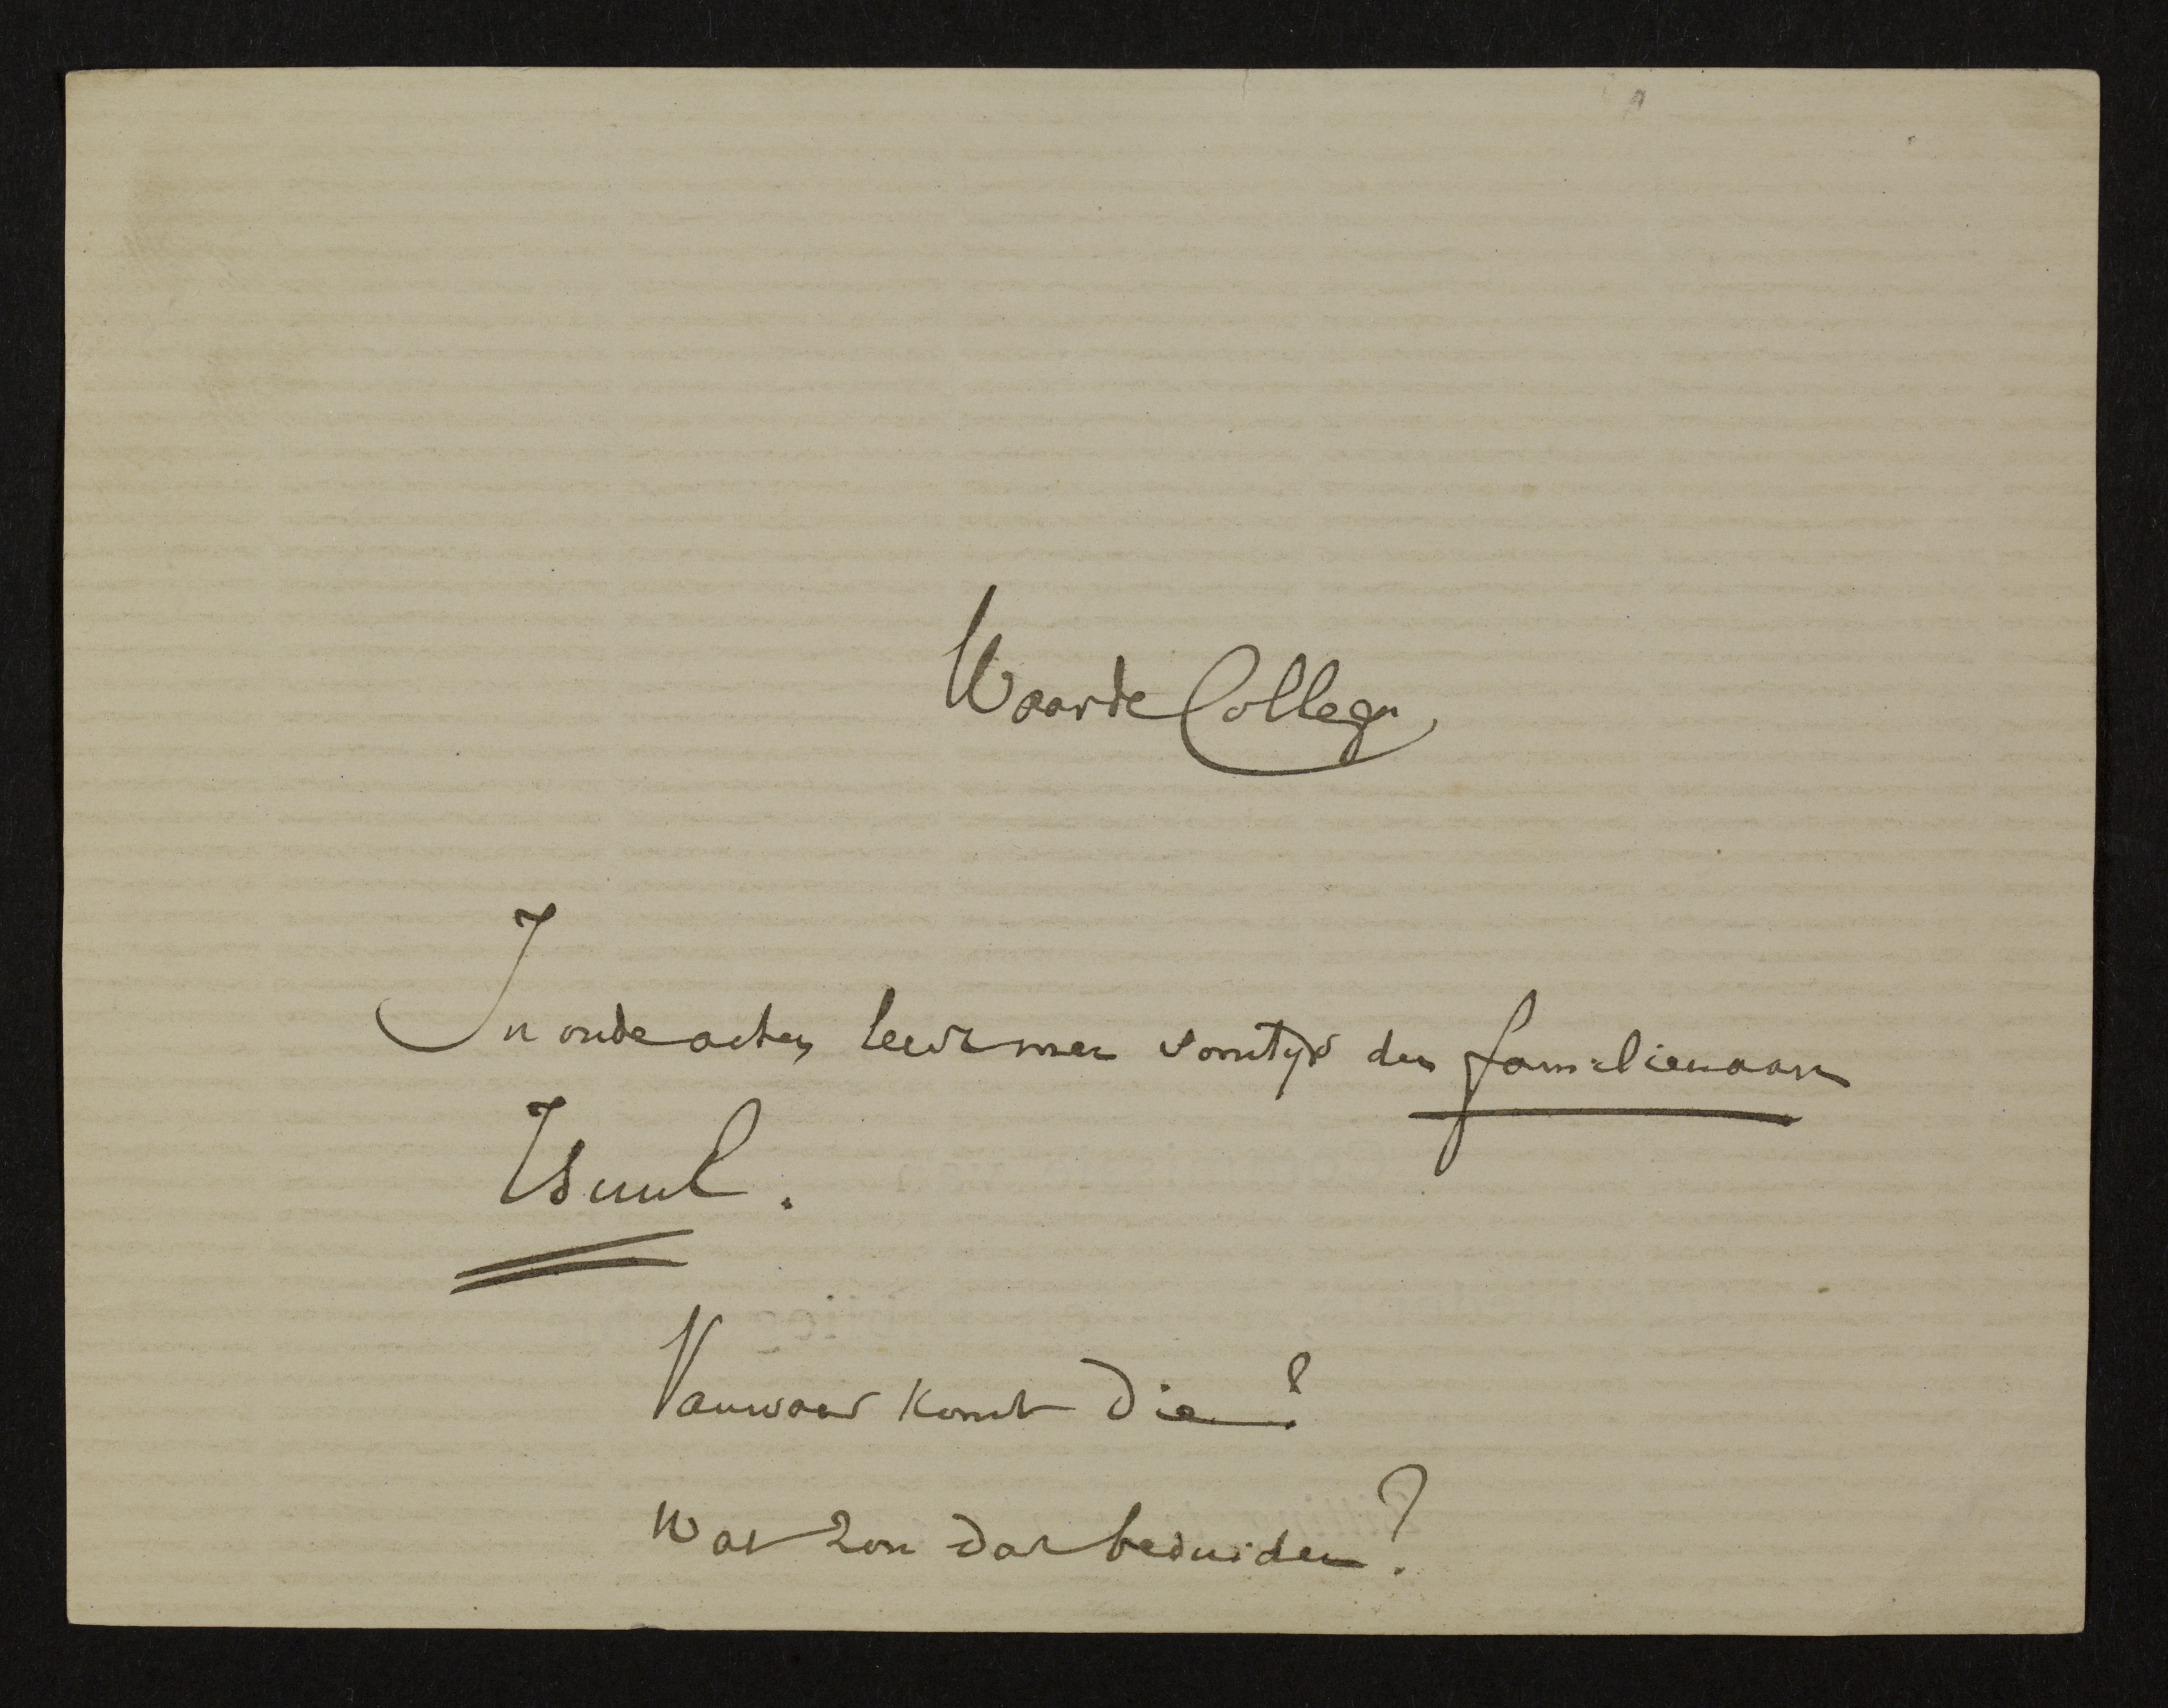 Waarde Collega,
In oude acten leest men somtijds den familienaam
Isuul.
Vanwaar komt die?
Wat zou dat beduiden?